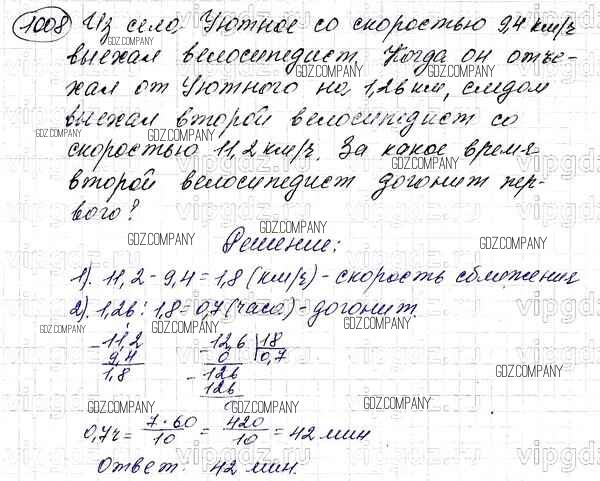 1008 Из села Уютное со скоростью 9,4 км/ч
выехал велосипедист. Когда он отъе-
хал от Уютного на 1,26 км, следом
выехал второй велосипедист со
скоростью 11,2 км/ч. За какое время
второй велосипедист догонит пер-
вого?
Решение:
1). 11,2 - 9,4 = 1,8 (км/ч) - скорость сближения
2). 1,26 : 1,8 = 0,7 (часа) - догонит.
- 11,2 - 12,6 | 18
9,4 0 0,7
1,8 - 126
126
0
0,7ч = 7·60/10 = 420/10 = 42 мин
Ответ: 42 мин.
GDZ.COMPANY
vipgdz.ru